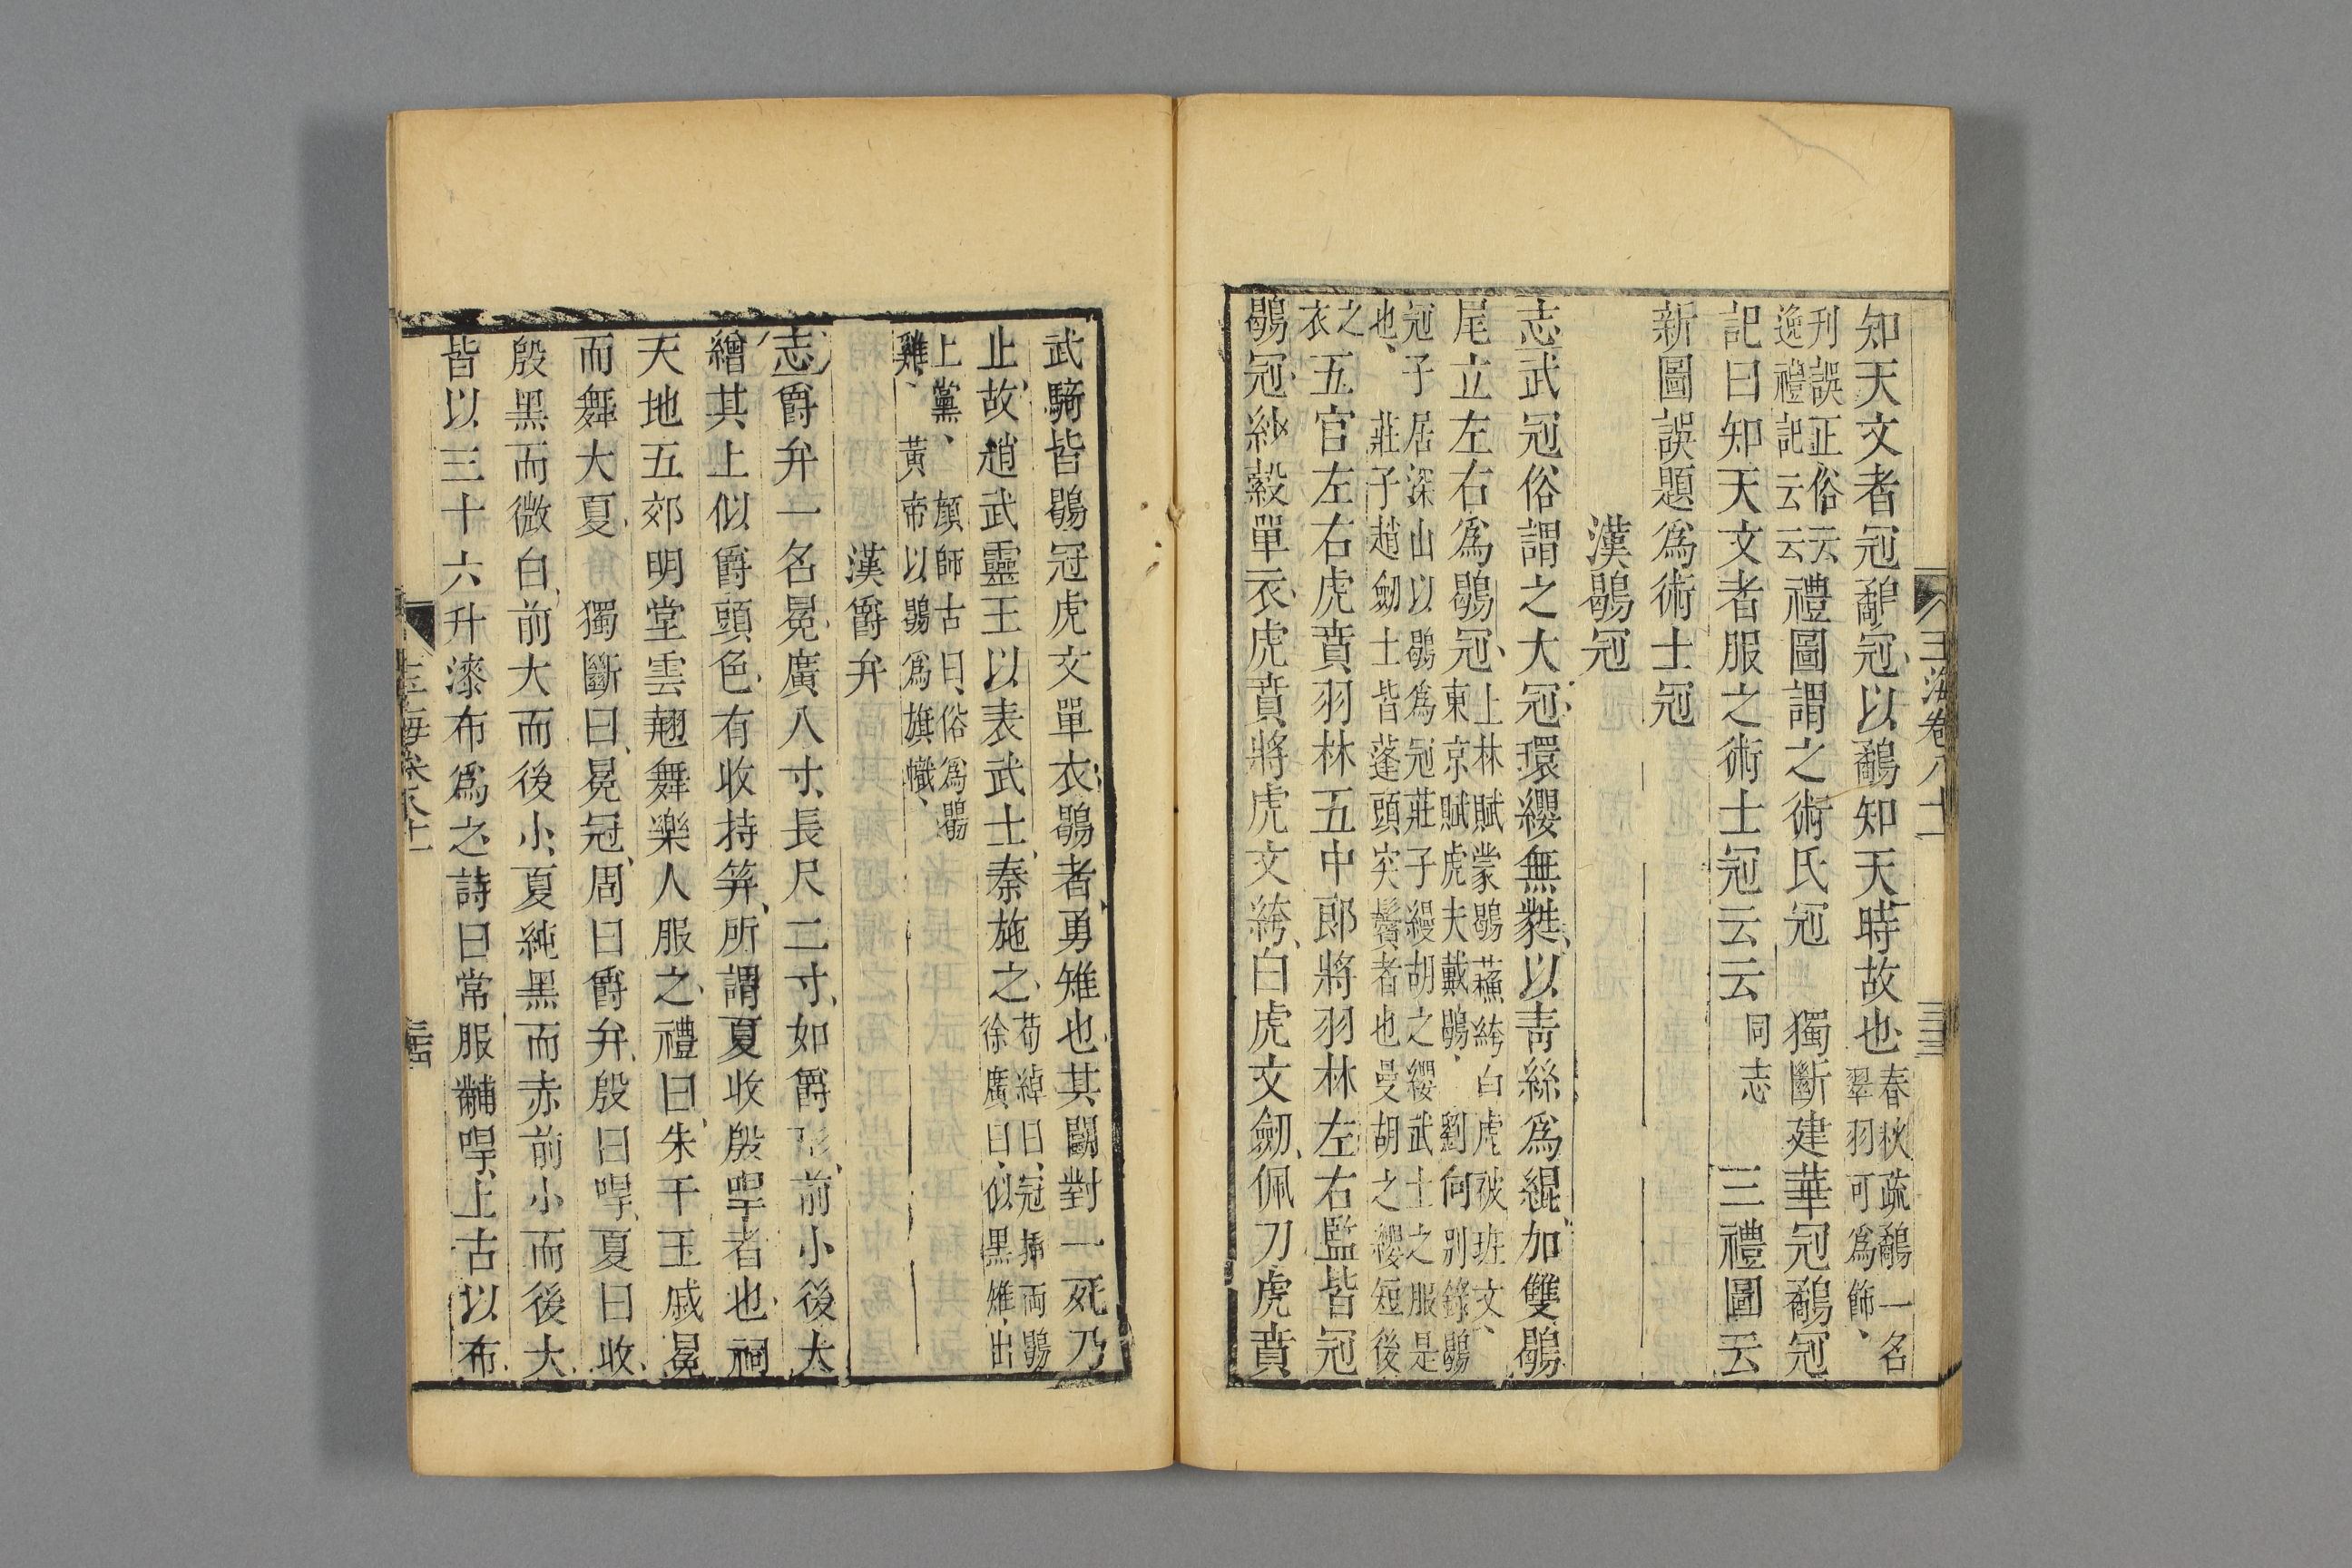 知天文者冠鷸冠以鷸知天時故也春秋疏鷸一名翠羽可爲飾
刋誤正俗云逸禮記云云禮圖謂之術氏冠　獨斷建華冠鷸冠
記曰知天文者服之術士冠云云同志　三禮圖云
新圖誤題爲術士冠
漢鶡冠
志武冠俗謂之大冠環纓無蕤以青絲爲緄加雙鶡
尾立左右爲鶡冠上林賦蒙鶡蘇絝白虎被班文東京賦虎夫戴鶡　劉向別錄鶡
冠子居深山以鶡爲冠莊子縵胡之纓武士之服是也　莊子趙劒士皆蓬頭突鬢者也曼胡之纓短後
之衣五官左右虎賁羽林五中郎將羽林左右監皆冠
鶡冠紗縠單衣虎賁將虎文絝白虎文劒佩刀虎賁
武騎皆鶡冠虎文單衣鶡者勇雉也其鬬對一死乃
止故趙武靈王以表武士秦施之荀綽曰冠揷兩鶡徐廣曰似黑雉出
上黨　顏師古曰俗爲鶡雞　黃帝以鶡爲旗幟
漢爵弁
志爵弁一名冕廣八寸長尺二寸如爵形前小後大
繒其上似爵頭色有收持筓所謂夏收殷冔者也祠
天地五郊明堂雲翹舞樂人服之禮曰朱干玉戚冕
而舞大夏　獨斷曰冕冠周曰爵弁殷曰冔夏曰收
殷黑而微白前大而後小夏純黑而赤前小而後大
皆以三十六升漆布爲之詩曰常服黼冔上古以布
玉海卷八十一
三十三
玉海卷八十一
三十四